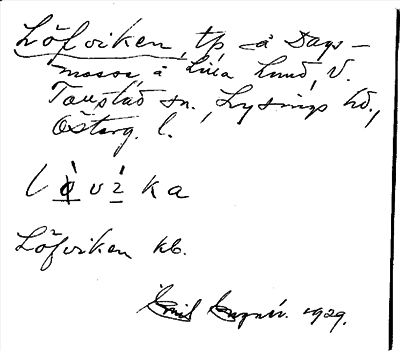 Löfviken, tp å Dags-
mosse, å Lilla Lund, V.
Tollstad sn., Lysings hd.,
Österg. l.
Löfviken kb.
Emil 1929.